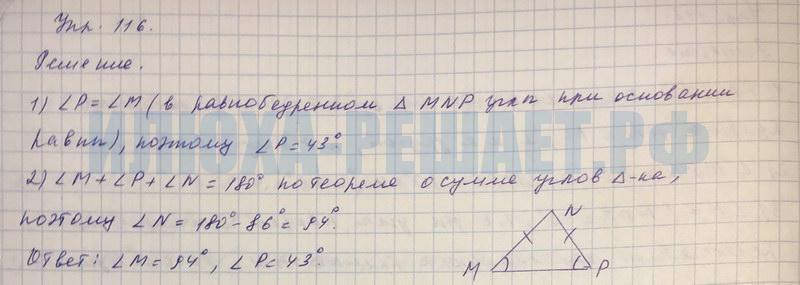 Упр. 116.
Решение.
1) ∠P = ∠M (в равнобедренном Δ MNP углы при основании
равны), поэтому ∠P = 43°.
ИЛЮХА-РЕШАЕТ.РФ
2) ∠M + ∠P + ∠N = 180° по теореме о сумме углов Δ-ка,
поэтому ∠N = 180° - 86° = 94°.
Ответ: ∠M = 94°, ∠P = 43°.
N
M P